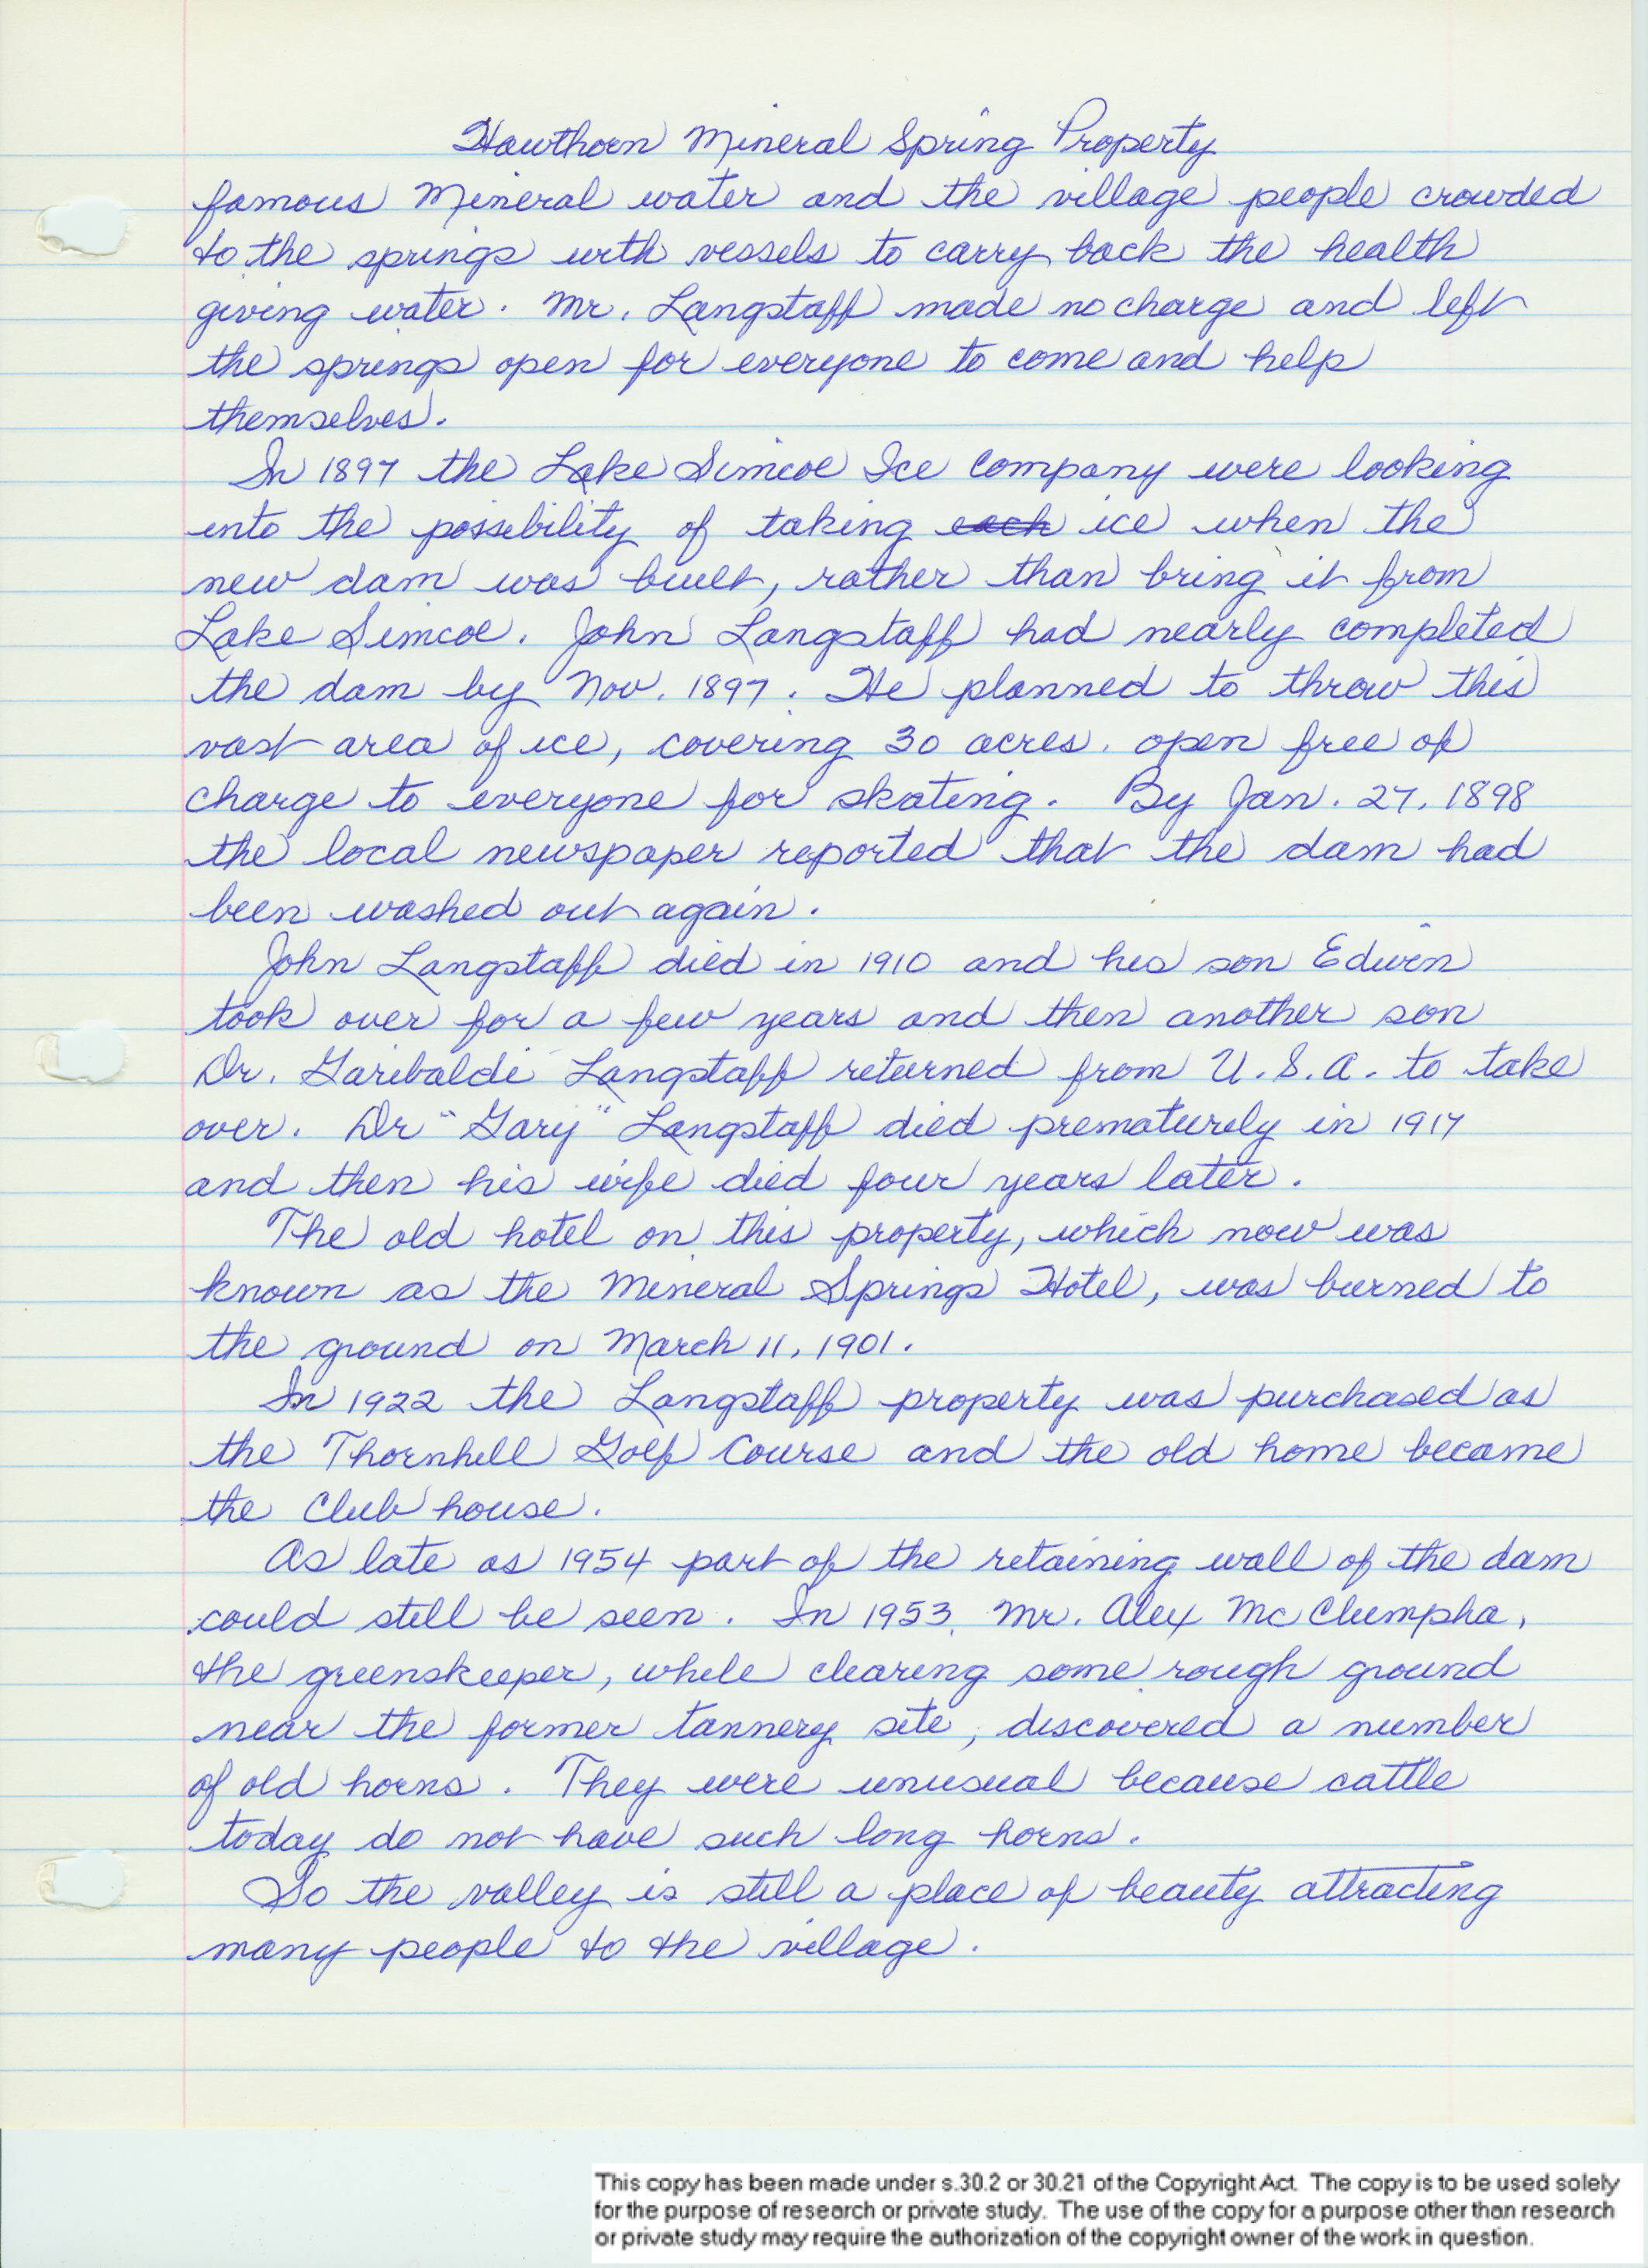 Hawthorn Mineral Spring Property
famous Mineral water and the village people crowded
to the springs with vessels to carry back the health
giving water. Mr. Langstaff made no charge and left
the springs open for everyone to come and help
themselves.
In 1897 the Lake Simcoe Ice Company were looking
into the possibility of taking each ice when the
new dam was built, rather than bring it from
Lake Simcoe. John Langstaff had nearly completed
the dam by Nov. 1897. He planned to throw this
vast area of ice, covering 30 acres. open free of
charge to everyone for skating. By Jan. 27, 1898
the local newspaper reported that the dam had
been washed out again.
John Langstaff died in 1910 and his son Edwin
took over for a few years and then another son
Dr. Garibaldi Langstaff returned from U.S.A. to take
over. Dr "Gary" Langstaff died prematurely in 1917
and then his wife died four years later.
The old hotel on this property, which now was
known as the Mineral Springs Hotel, was burned to
the ground on March 11, 1901.
In 1922 the Langstaff property was purchased as
the Thornhill Golf Course and the old home became
the Club house.
As late as 1954 part of the retaining wall of the dam
could still be seen. In 1953, Mr. Alex McClumpha,
the greenskeeper, while clearing some rough ground
near the former tannery site, discovered a number
of old horns. They were unusual because cattle
today do not have such long horns.
So the valley is still a place of beauty attracting
many people to the village.
This copy has been made under s.30.2 or 30.21 of the Copyright Act. The copy is to be used solely
for the purpose of research or private study. The use of the copy for a purpose other than research
or private study may require the authorization of the copyright owner of the work in question.